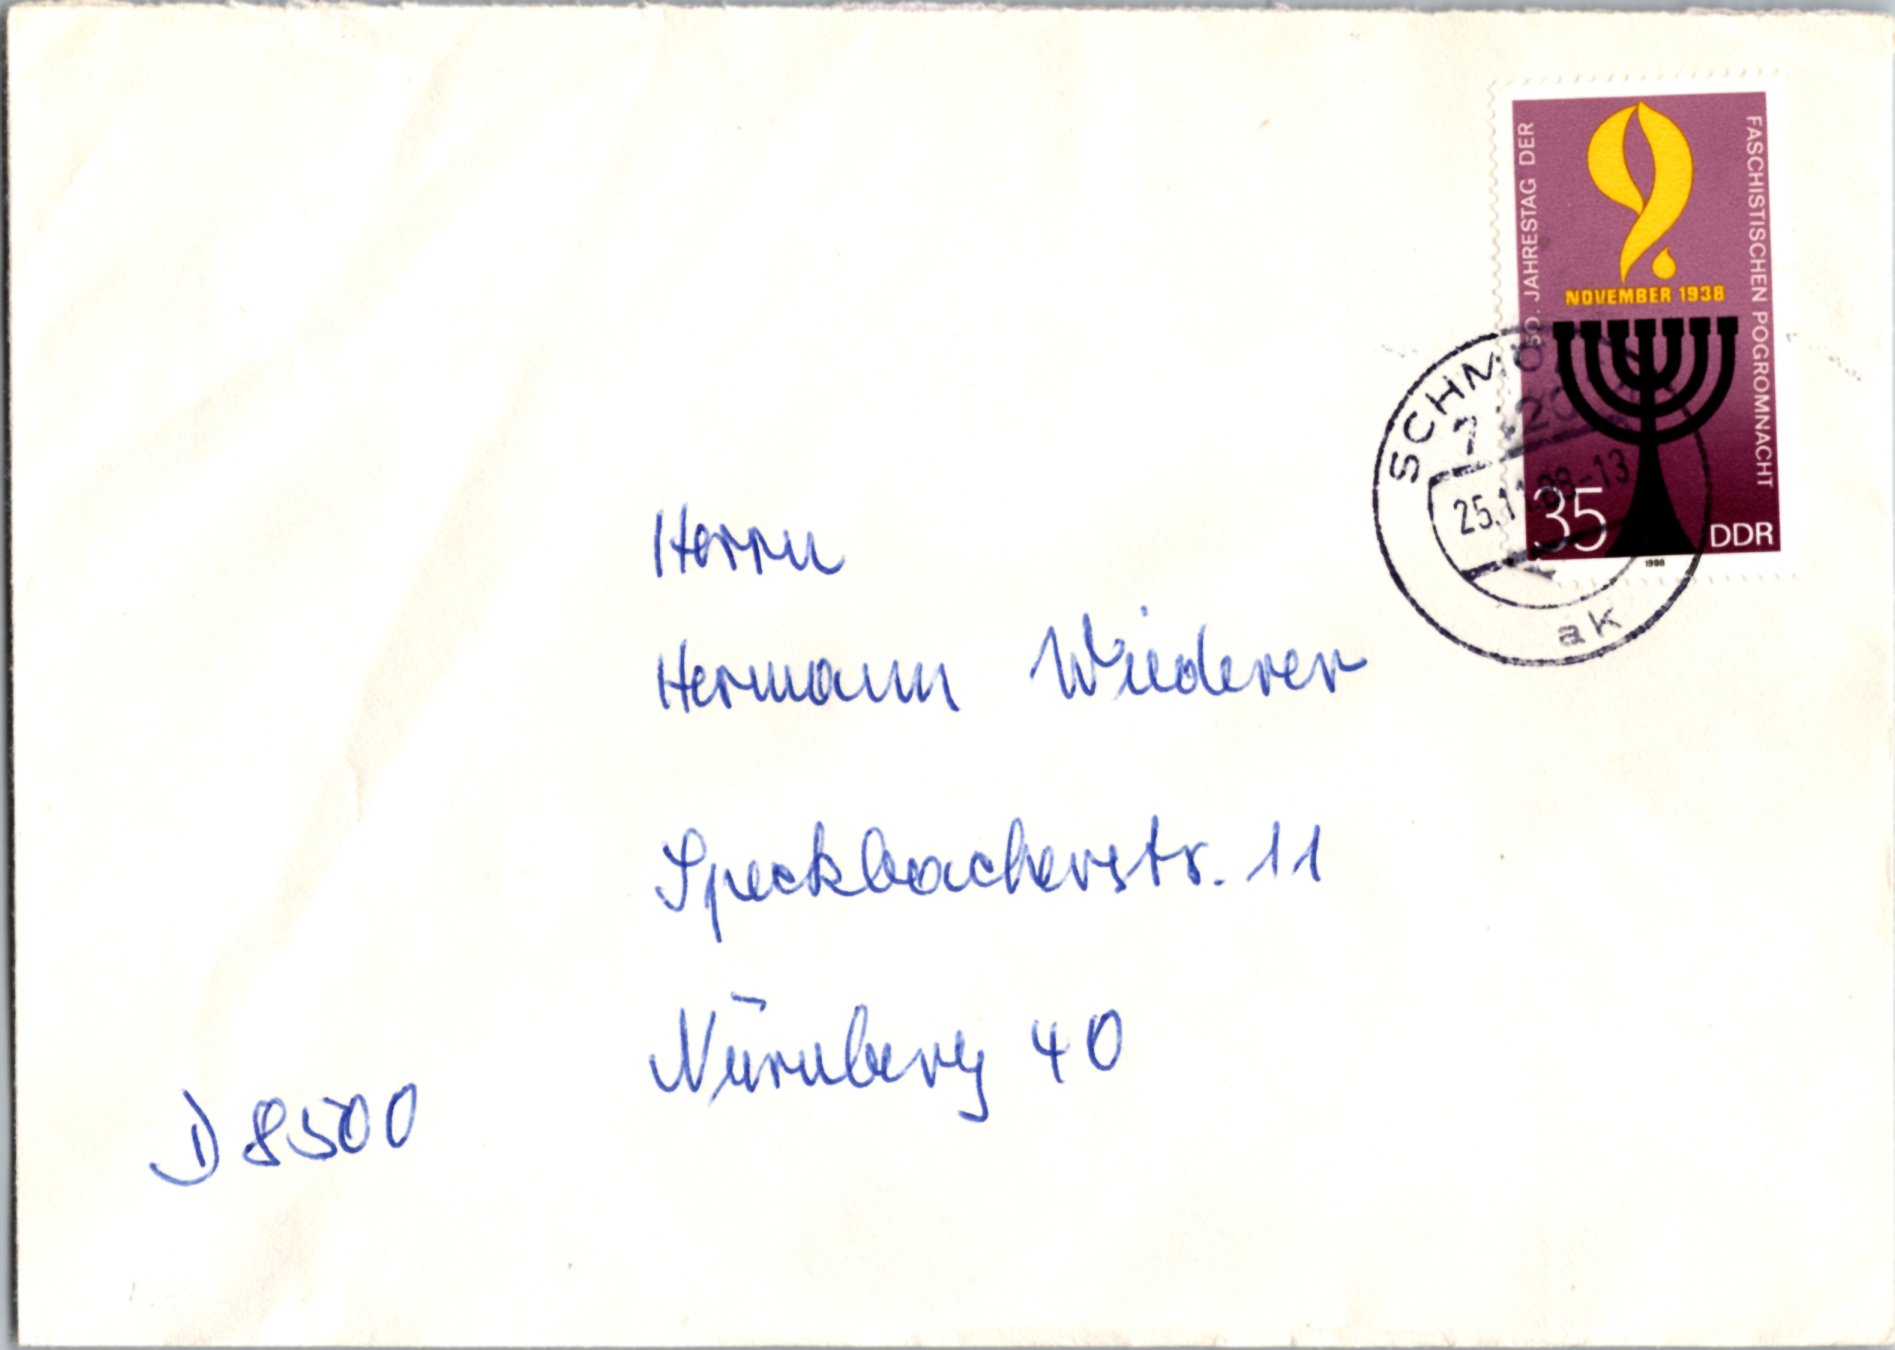 50. JAHRESTAG DER
FASCHISTISCHEN POGROMNACHT
9.
NOVEMBER 1938
35
DDR
1988
25.11.88-13
ak
Herrn
Hermann Wiederer
Speckbacherstr. 11
Nürnberg 40
D 8500